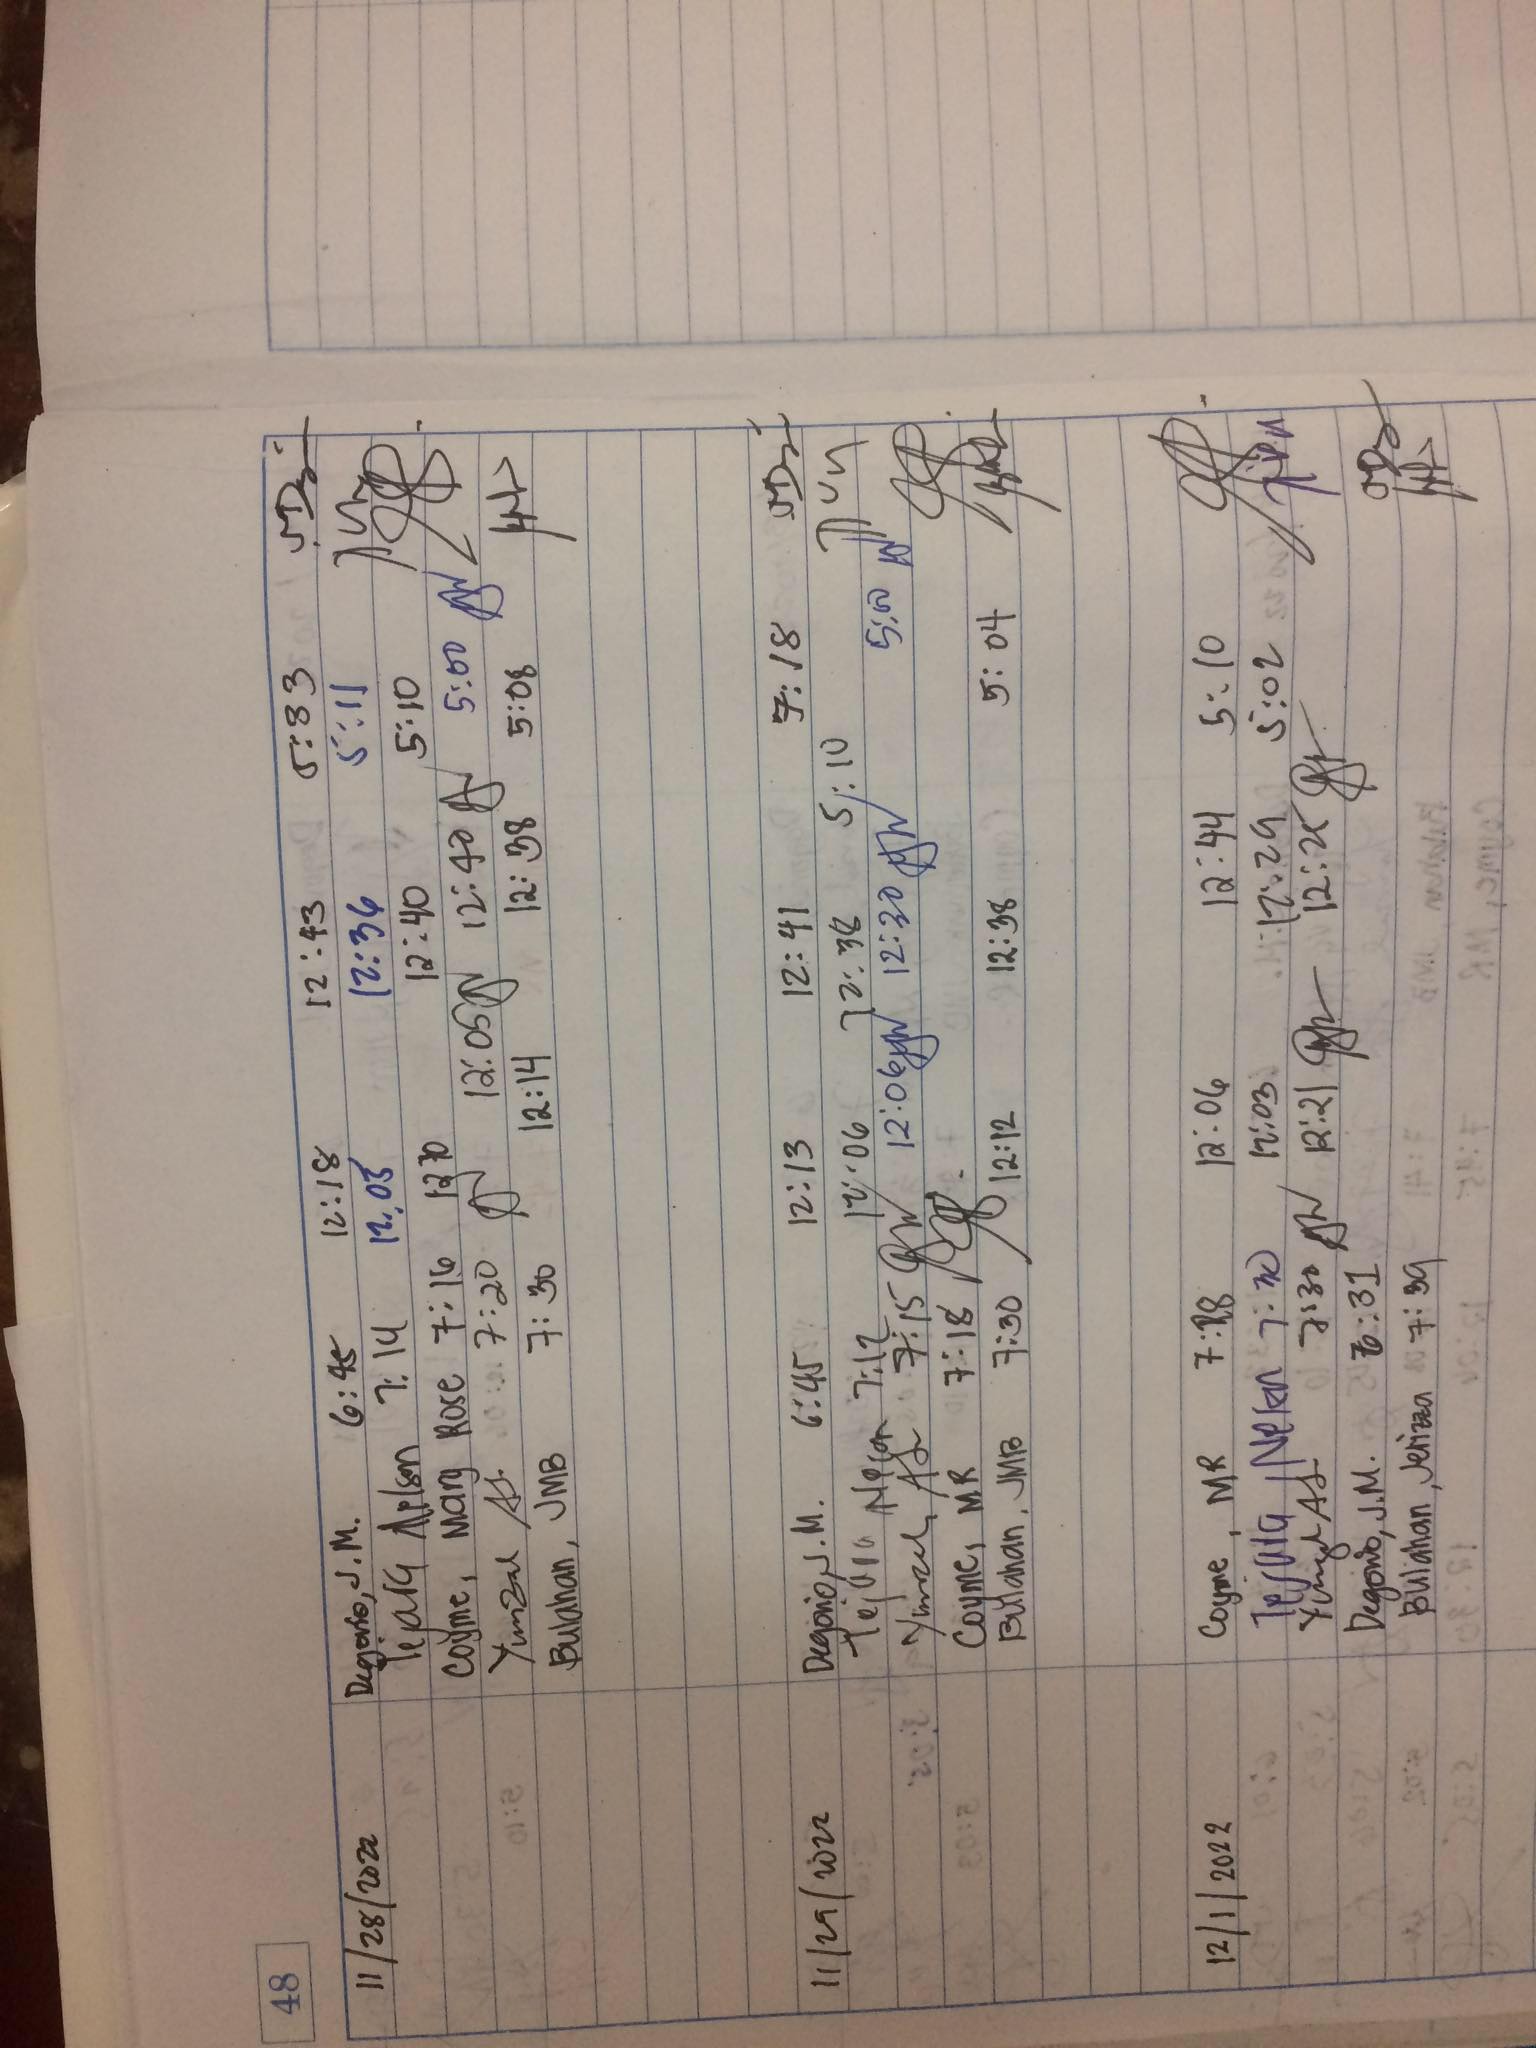 48
11/28/2022 Degorio, J.M. 6:45 12:18 12:43 5:33
7:14 12:03 12:36 5:11
Coyme, Mary Rose 7:16 12:40 5:10
Yimzal AJ. 7:20 12:05 12:40 5:00
Bulahan, JMB 7:30 12:14 12:38 5:08
11/29/2022 Degorio, J.M. 6:45 12:13 12:41 7:18
Nelson 7:12 12:06 12:38 5:10
7:15 12:06 12:30 5:00
Coyme, MR 7:18
Bulahan, JMB 7:30 12:12 12:38 5:04
12/1/2022 Coyme, MR 12:06 12:44 5:10
Nelson 7:30 12:03 12:29 5:02
7:30 12:21 12:25
Degorio, J.M. :31
Bulahan, Jerizza 7:39